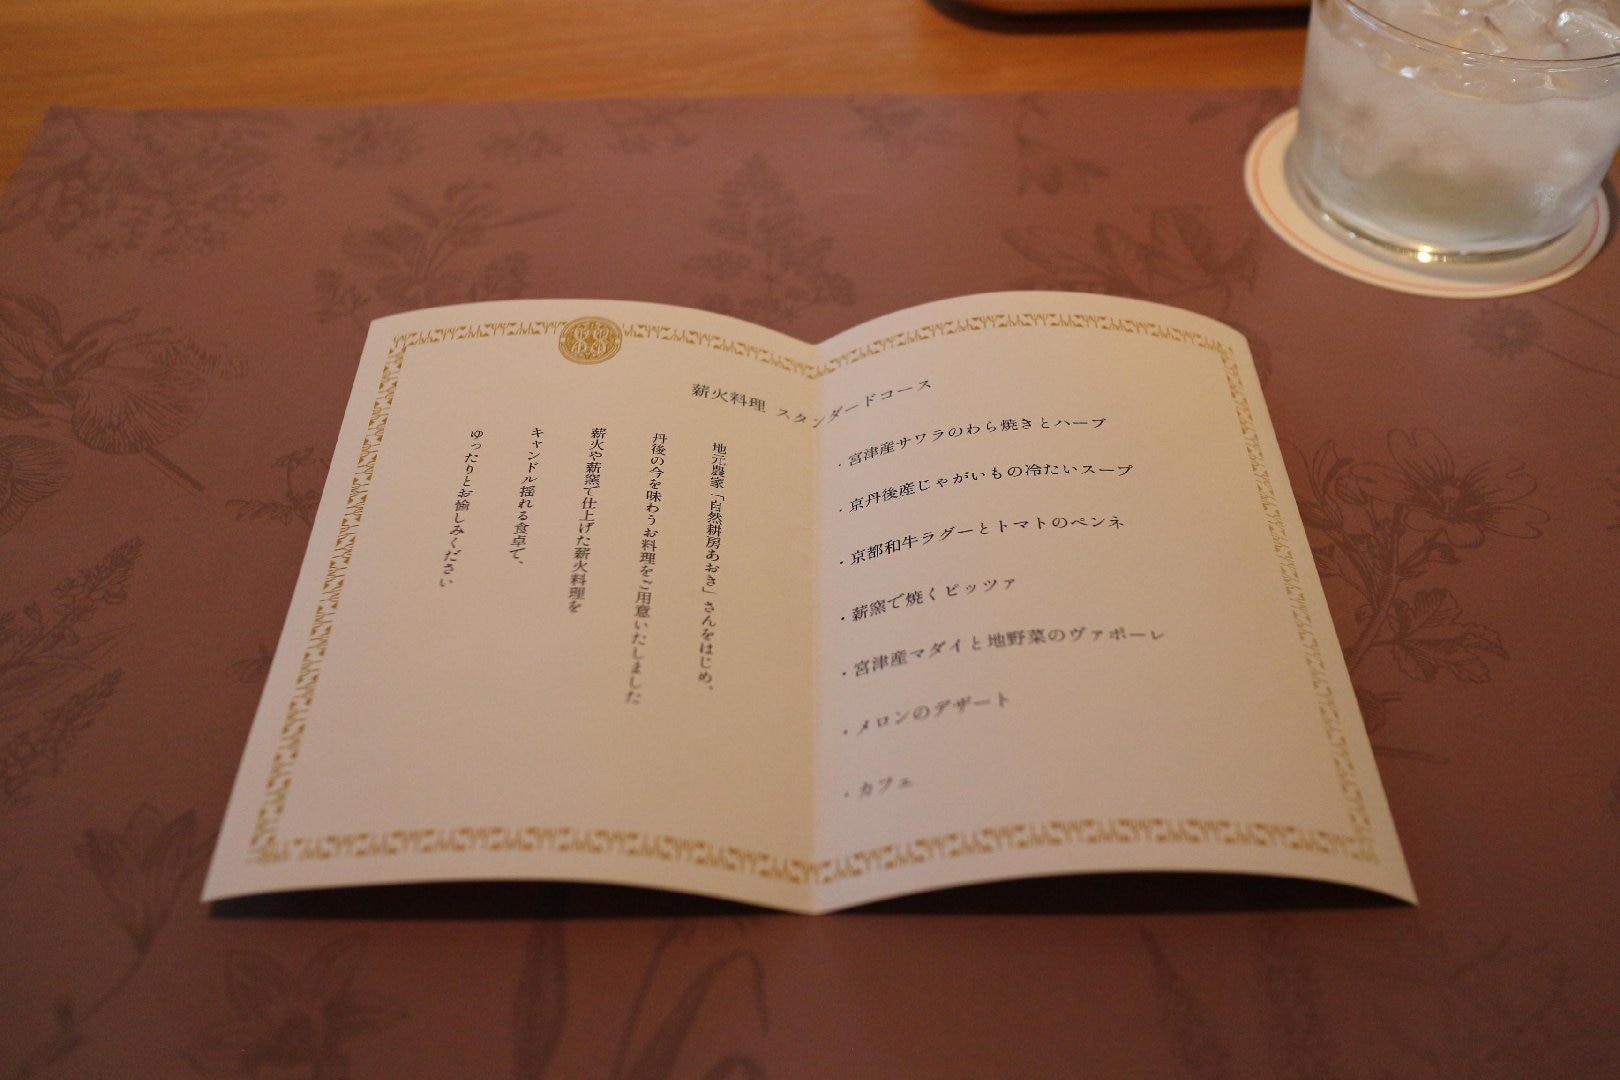 薪火料理 スタンダードコース
地元農家「自然耕房あおき」さんをはじめ、
丹後の今を味わうお料理をご用意いたしました
薪火や薪窯で仕上げた薪火料理を
キャンドル揺れる食卓で、
ゆったりとお愉しみください
・宮津産サワラのわら焼きとハーブ
・京丹後産じゃがいもの冷たいスープ
・京都和牛ラグーとトマトのペンネ
・薪窯で焼くピッツァ
・宮津産マダイと地野菜のヴァポーレ
・メロンのデザート
・カフェ